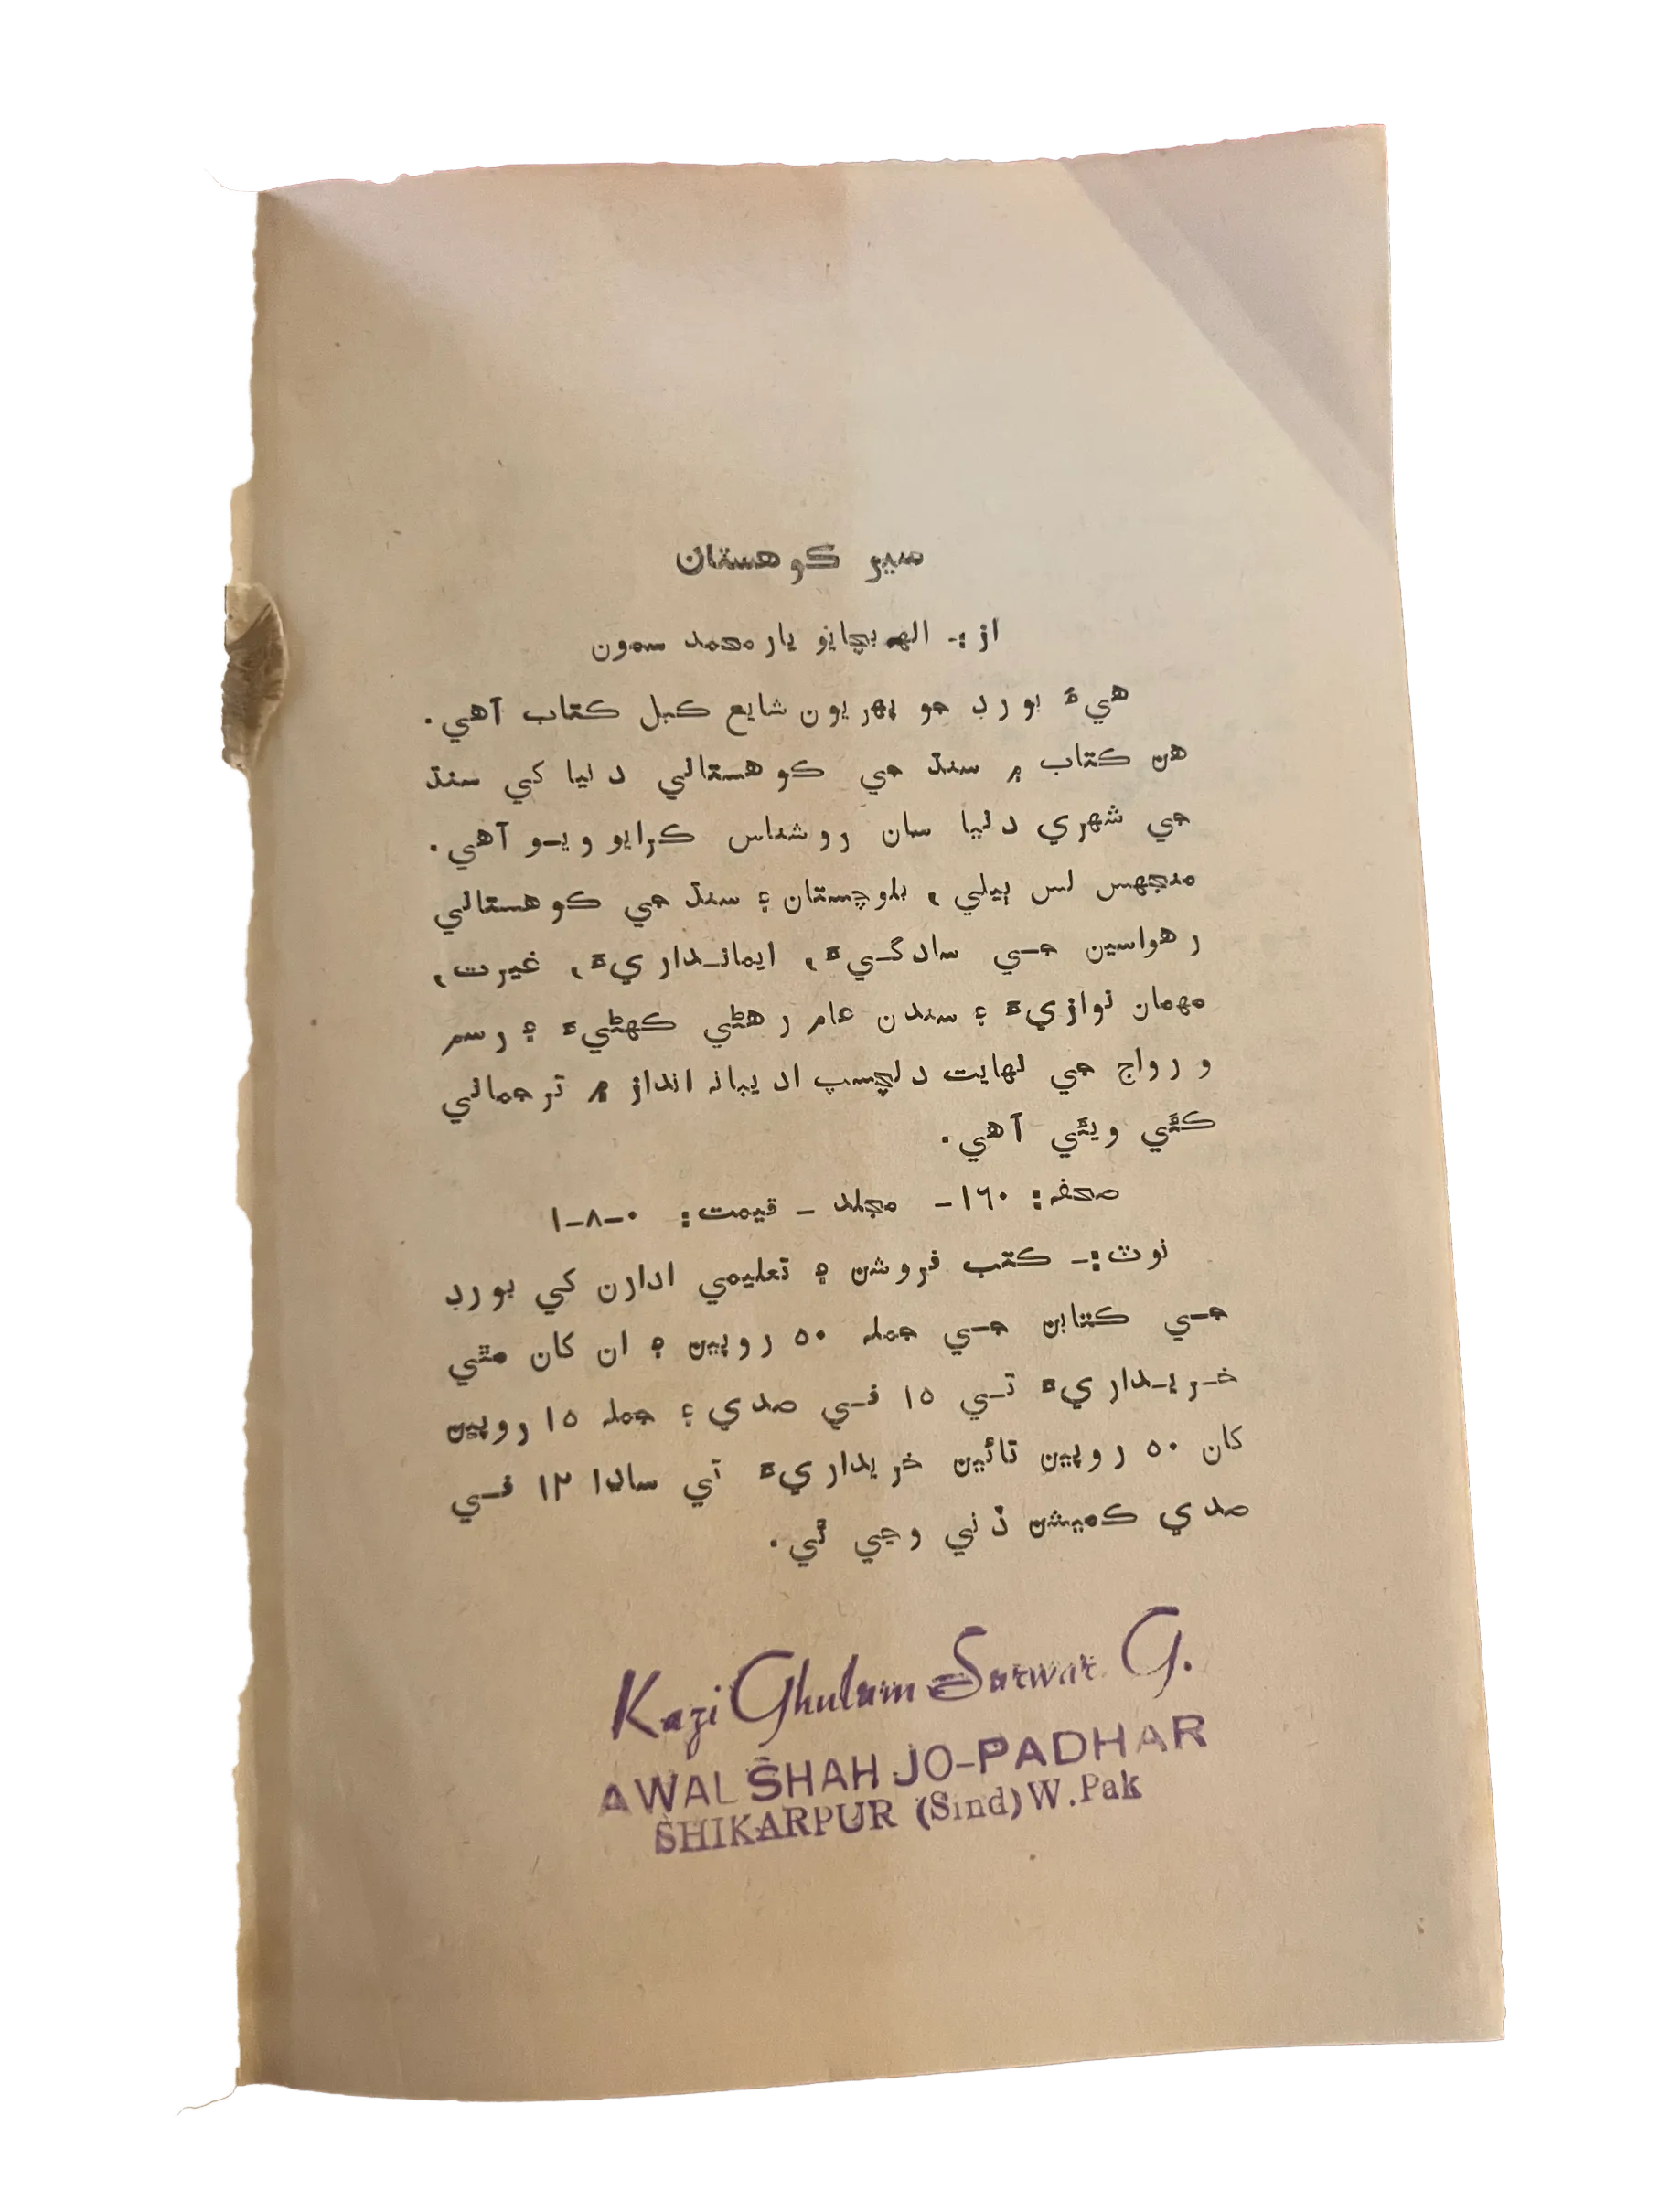 سير ڪوهستان
از :- الهه بچايو يار محمد سمون
هيءُ بورڊ جو پهريون شايع ڪيل ڪتاب آهي.
هن ڪتاب ۾ سنڌ جي ڪوهستاني دنيا کي سنڌ
جي شهري دنيا سان روشناس ڪرايو ويو آهي.
منجهس لس ٻيلي، بلوچستان ۽ سنڌ جي ڪوهستاني
رهواسين جي سادگيءَ، ايمانداريءَ، غيرت،
مهمان نوازيءَ ۽ سندن عام رهڻي ڪهڻيءَ ۽ رسم
و رواج جي نهايت دلچسپ اديبانہ انداز ۾ ترجماني
ڪئي ويئي آهي.
صحفہ: ۱۶۰- مجلد - قيمت: ۰-۸-۱
نوٽ:- ڪتب فروشن ۽ تعليمي ادارن کي بورڊ
جي ڪتابن جي جملہ ۵۰ روپين ۽ ان کان مٿي
خريداريءَ تي ۱۵ في صدي ۽ جملہ ۱۵ روپين
کان ۵۰ روپين تائين خريداريءَ تي ساڍا ۱۲ في
صدي ڪميشن ڏني وڃي ٿي.
Kazi Ghulam Sarwar G.
AWAL SHAH JO-PADHAR
SHIKARPUR (Sind) W.Pak